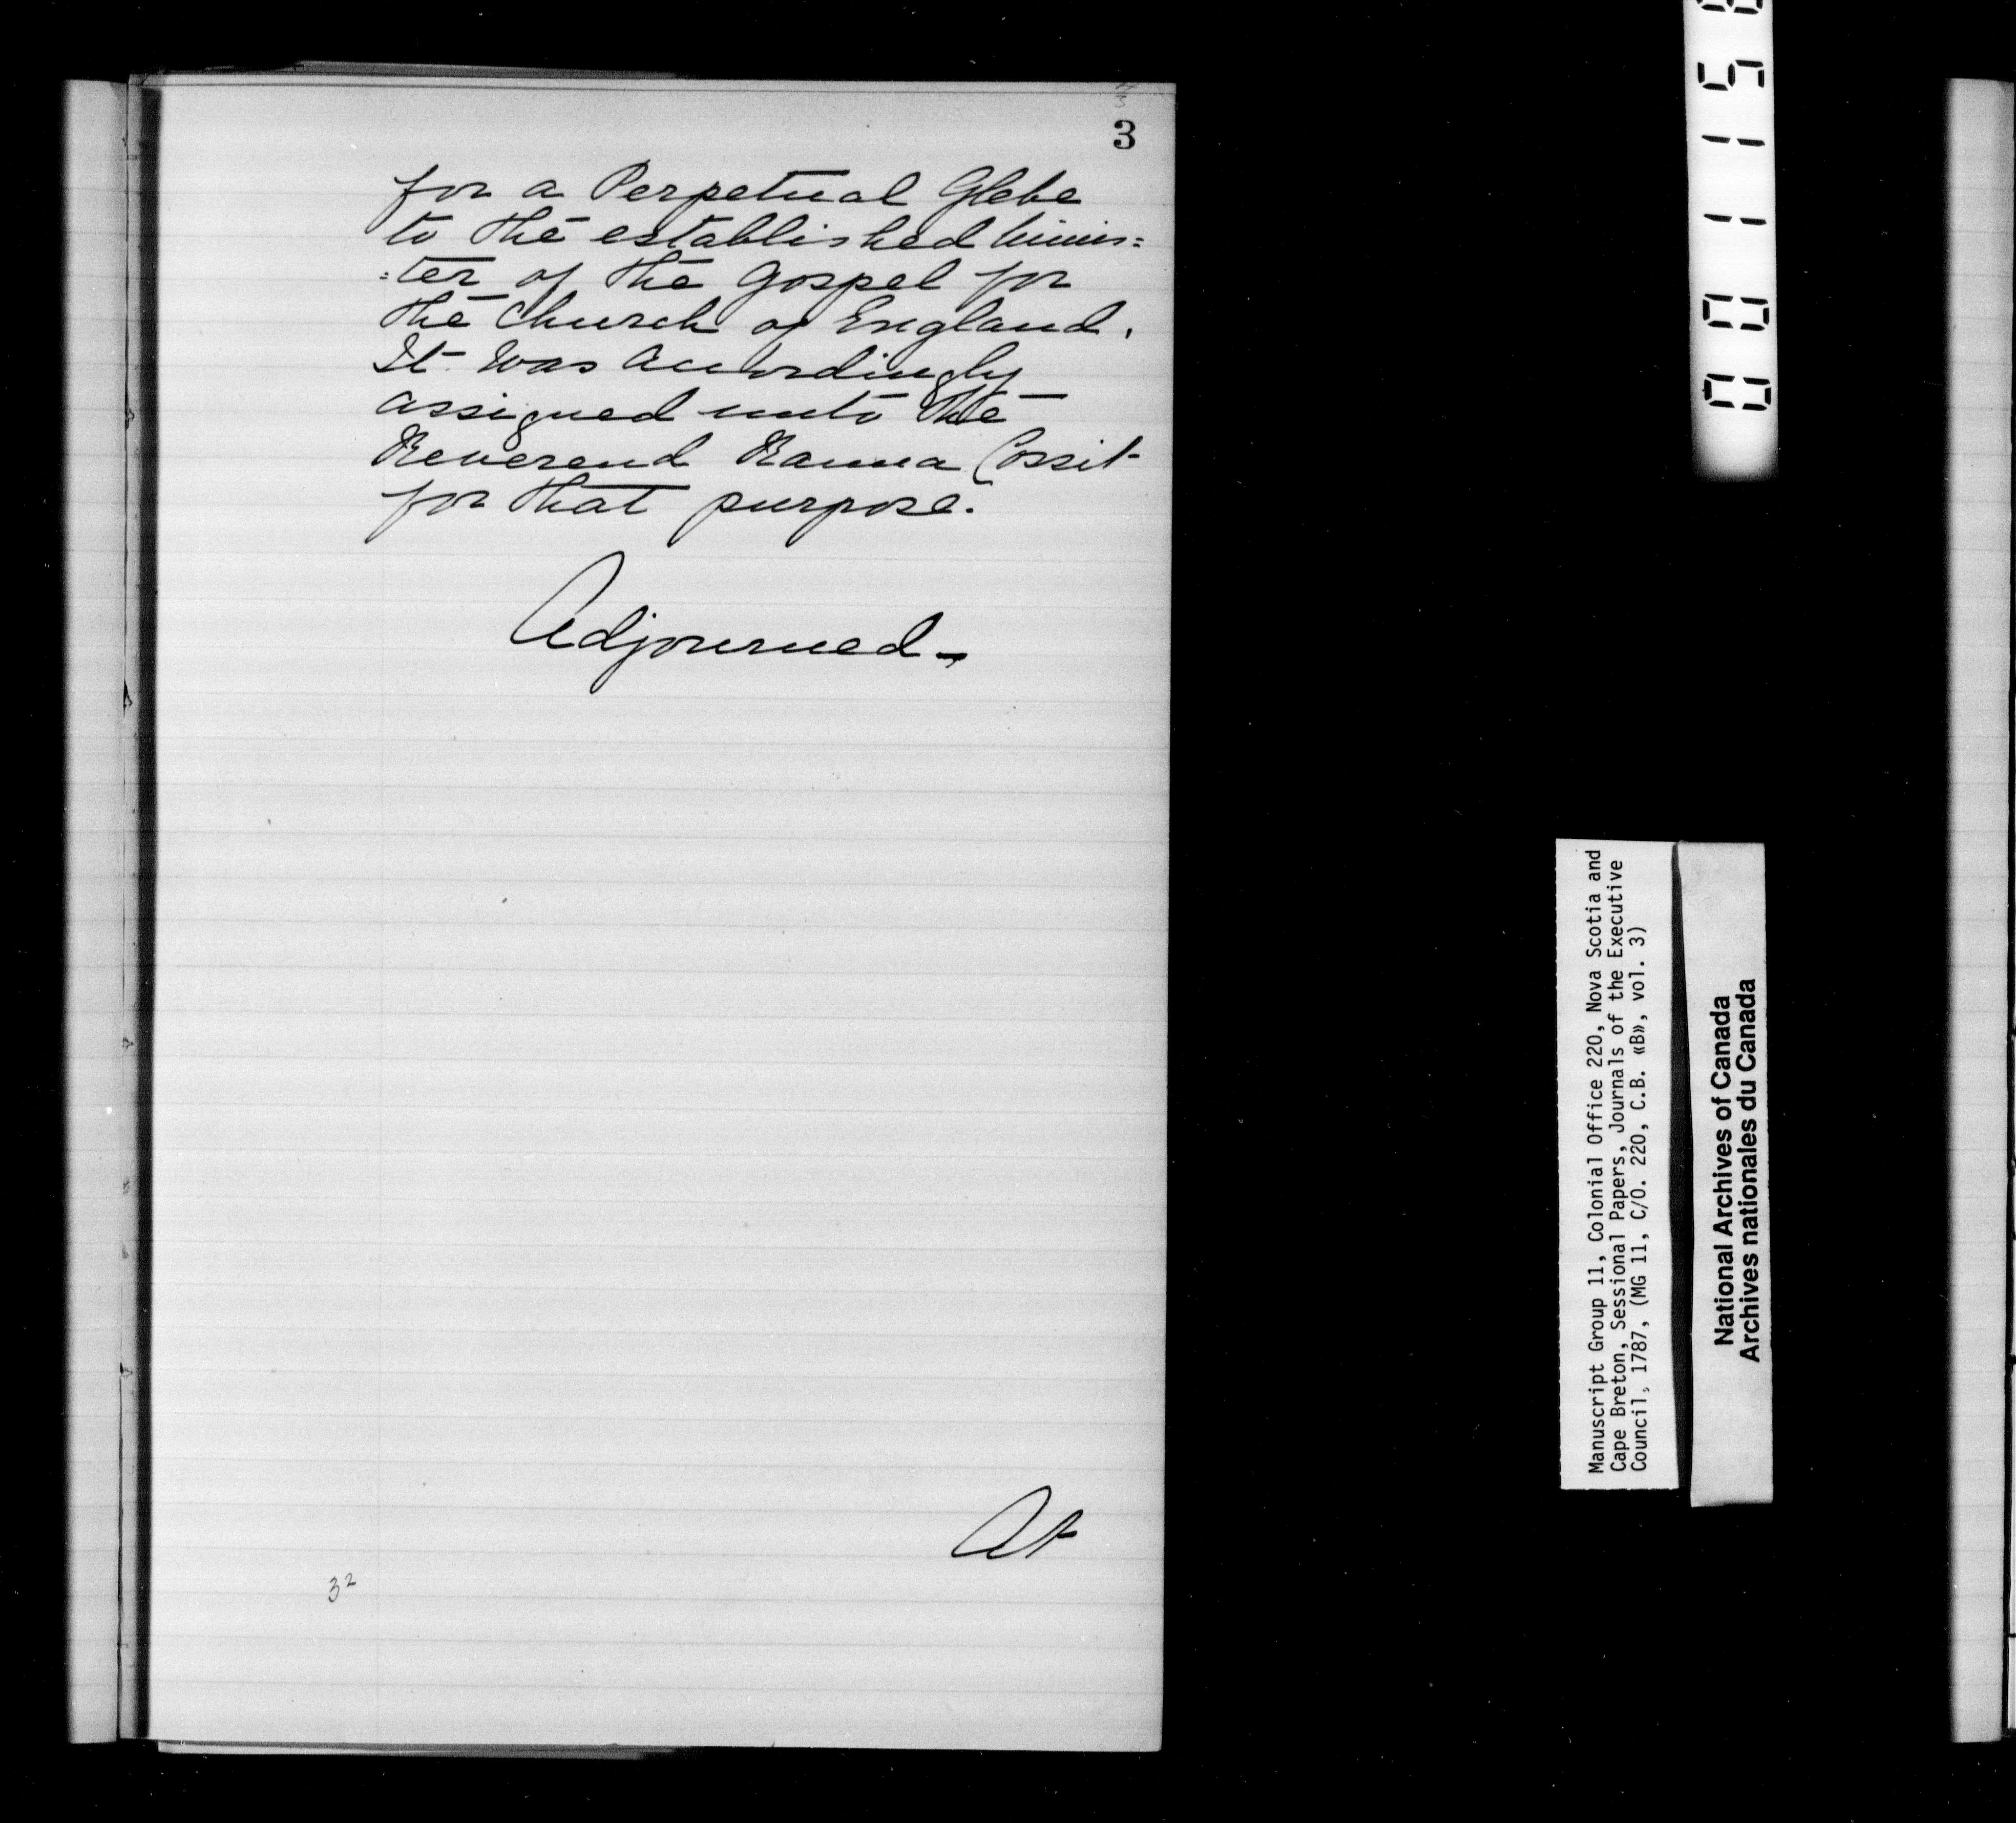 3
for a Perpetual Glebe
to the established Minis=
=ter of the Gospel for
the Church of England.
It was accordingly
assigned unto the
Reverend Ranna Cossit
for that purpose.
Adjourned-
At
32
00115
Manuscript Group 11, Colonial Office 220, Nova Scotia and
Cape Breton, Sessional Papers, Journals of the Executive
Council, 1787, (MG 11, C/O. 220, C.B. «B», vol. 3)
National Archives of Canada
Archives nationales du Canada